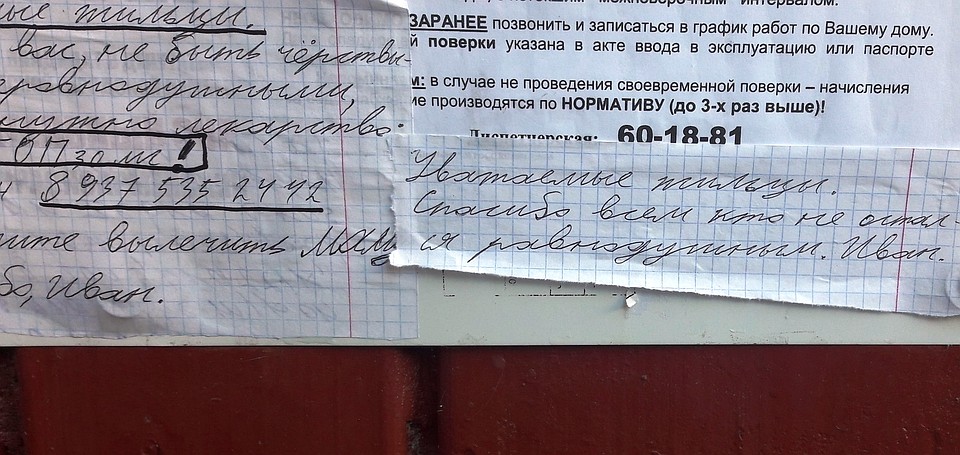 ые жильцы.
вас, не быть чёрствы-
равнодушными,
нужно лекарство:
ОП, 30 мг!
8 937 535 2442
вылечить маму
бо, Иван.
межповерочным интервалом.
ЗАРАНЕЕ позвонить и записаться в график работ по Вашему дому.
й поверки указана в акте ввода в эксплуатацию или паспорте
м: в случае не проведения своевременной поверки – начисления
ие производятся по НОРМАТИВУ (до 3-х раз выше)!
Диспетчерская: 60-18-81
Уважаемые жильцы.
Спасибо всем кто не остал-
ся равнодушным. Иван.